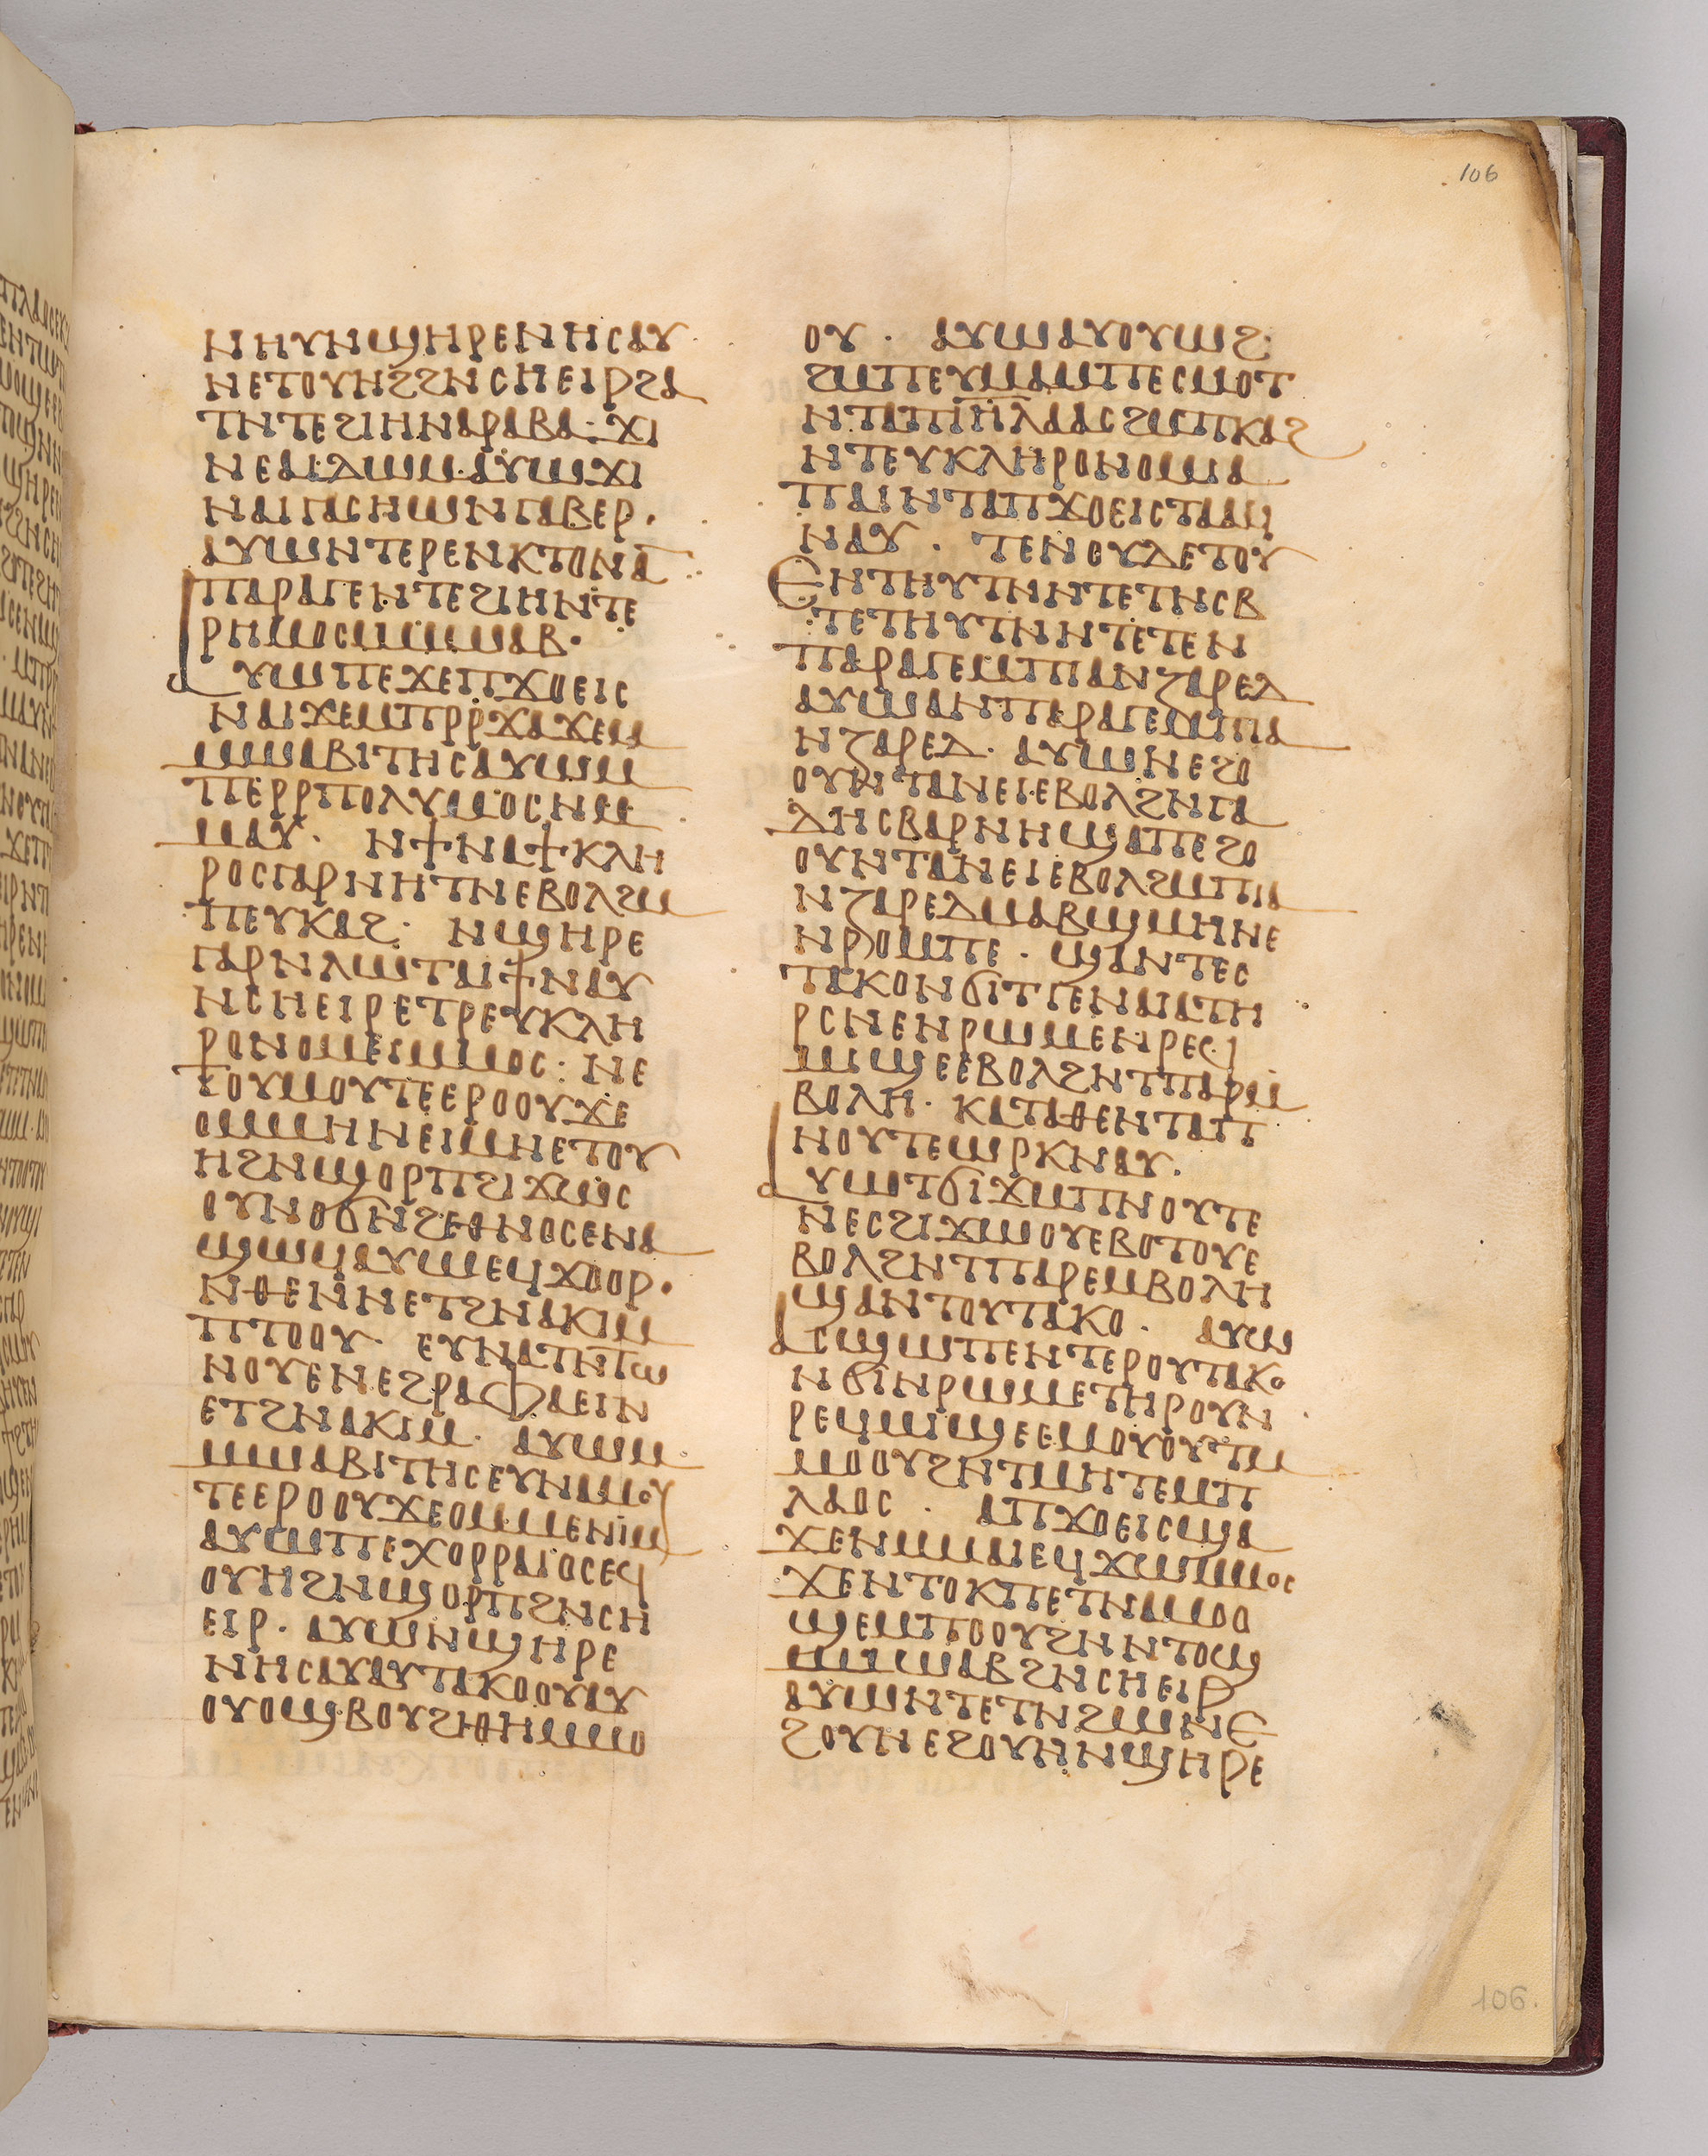 ⲛⲏⲩⲛϣⲏⲣⲉⲛⲏⲥⲁⲩ·
ⲛⲉⲧⲟⲩⲏϩϩⲛⲥⲏⲉⲓⲣϩⲁ
ⲧⲛⲧⲉϩⲓⲏⲛⲁⲣⲁⲃⲁ·ϫⲓ
ⲛⲉⲁⲓⲇⲱⲙ·ⲁⲩⲱϫⲓ
ⲛⲁⲓⲅⲁⲥⲏⲱⲛⲅⲁⲃⲉⲣ·
ⲁⲩⲱⲛⲧⲉⲣⲉⲛⲕⲧⲟⲛⲁ̄
ⲡⲁⲣⲁⲅⲉⲛⲧⲉϩⲓⲏⲛⲧⲉ
ⲣⲏⲙⲟⲥⲙⲙⲱⲁⲃ·
ⲁⲩⲱⲡⲉϫⲉⲡϫⲟⲉⲓⲥ
ⲛⲁⲓϫⲉⲙⲡⲣⲣϫⲁϫⲉⲙ
ⲙⲱⲁⲃⲓⲧⲏⲥⲁⲩⲱⲙ
ⲡⲉⲣⲣⲡⲟⲗⲩⲙⲟⲥⲛⲙ
ⲙⲁⲩ· ⲛϯⲛⲁϯⲕⲗⲏ
ⲣⲟⲥⲅⲁⲣⲛⲏⲧⲛⲉⲃⲟⲗϩⲙ
ⲡⲉⲩⲕⲁϩ· ⲛϣⲏⲣⲉ
ⲅⲁⲣⲛⲗⲱⲧⲁⲓϯⲛⲁⲩ
ⲛⲥⲏⲉⲓⲣⲉⲧⲣⲉⲩⲕⲗⲏ
ⲣⲟⲛⲟⲙⲉⲓⲙⲙⲟⲥ: ⲛⲉ
ⲧⲟⲩⲙⲟⲩⲧⲉⲉⲣⲟⲟⲩϫⲉ
ⲟⲙⲙⲏⲛⲉⲓⲙⲛⲉⲧⲟⲩ
ⲏϩⲛϣⲟⲣⲡϩⲓϫⲱⲥ
ⲟⲩⲛⲟϭⲛϩⲉⲑⲛⲟⲥⲉⲛⲁ
ϣⲱϥⲁⲩⲱⲉϥϫⲟⲟⲣ·
ⲛⲑⲉⲛⲛⲉⲧϩⲛⲁⲕⲓⲙ
ⲡⲧⲟⲟⲩ· ⲉⲩⲛⲁⲧⲛⲧⲱ
ⲛⲟⲩⲉⲛⲉϩⲣⲁⲫⲁⲉⲓⲛ
ⲉⲧϩⲛⲁⲕⲓⲙ· ⲁⲩⲱⲙ
ⲙⲱⲁⲃⲓⲧⲏⲥⲉⲩⲛⲁⲙⲟⲩ
ⲧⲉⲉⲣⲟⲟⲩϫⲉⲟⲙⲙⲉⲛⲓⲙ
ⲁⲩⲱⲡⲉⲭⲟⲣⲣⲁⲓⲟⲥⲉϥ
ⲟⲩⲏϩⲛϣⲟⲣⲡϩⲛⲥⲏ
ⲉⲓⲣ· ⲁⲩⲱⲛϣⲏⲣⲉ
ⲛⲏⲥⲁⲩⲁⲩⲧⲁⲕⲟⲟⲩⲁⲩ
ⲟⲩⲟϣⲃⲟⲩϩⲓⲑⲏⲙⲙⲟ
ⲟⲩ· ⲁⲩⲱⲁⲩⲟⲩⲱϩ
ϩⲙⲡⲉⲩⲙⲁⲙⲡⲉⲥⲙⲟⲧ
ⲛⲧⲁⲡⲓ̄ⲏ̄ⲗⲁⲁⲥϩⲙⲡⲕⲁϩ
ⲛⲧⲉⲩⲕⲗⲏⲣⲟⲛⲟⲙⲓⲁ
ⲡⲁⲓⲛⲧⲁⲡϫⲟⲉⲓⲥⲧⲁⲁϥ
ⲛⲁⲩ· ⲧⲉⲛⲟⲩⲇⲉⲧⲟⲩ
ⲉⲛⲧⲏⲩⲧⲛⲛⲧⲉⲧⲛⲥⲃ
ⲧⲉⲧⲏⲩⲧⲛⲛⲧⲉⲧⲉⲛ
ⲡⲁⲣⲁⲅⲉⲙⲡⲓⲁⲛⲍⲁⲣⲉⲇ
ⲁⲩⲱⲁⲛⲡⲉⲣⲁⲅⲉⲙⲡⲓⲁ
ⲛⲍⲁⲣⲉⲇ· ⲁⲩⲱⲛⲉϩⲟ
ⲟⲩⲛⲧⲁⲛⲉⲓⲉⲃⲟⲗϩⲛⲅⲁ
ⲇⲏⲥⲃⲁⲣⲛⲏϣⲁⲡⲉϩⲟ
ⲟⲩⲛⲧⲁⲛⲉⲓⲉⲃⲟⲗϩⲙⲡⲓⲁ
ⲛⲍⲁⲣⲉⲇⲙⲁⲃϣⲙⲏⲛⲉ
ⲛⲣⲟⲙⲡⲉ· ϣⲁⲛⲧⲉⲥ
ⲧⲁⲕⲟⲛϭⲓⲧⲅⲉⲛⲉⲁⲧⲏ
ⲣⲥⲛⲉⲛⲣⲱⲙⲉⲛⲣⲉϥ
ⲙⲓϣⲉⲉⲃⲟⲗϩⲛⲧⲡⲁⲣⲙ
ⲃⲟⲗⲏ· ⲕⲁⲧⲁⲑⲉⲛⲧⲁⲡ
ⲛⲟⲩⲧⲉⲱⲣⲕⲛⲁⲩ·
ⲁⲩⲱⲧϭⲓϫⲙⲡⲛⲟⲩⲧⲉ
ⲛⲉⲥϩⲓϫⲱⲟⲩⲉⲃⲟⲧⲟⲩⲉ
ⲃⲟⲗϩⲛⲧⲡⲁⲣⲉⲙⲃⲟⲗⲏ
ϣⲁⲛⲧⲟⲩⲧⲁⲕⲟ· ⲁⲩⲱ
ⲁⲥϣⲱⲡⲉⲛⲧⲉⲣⲟⲩⲧⲁⲕⲟ
ⲛϭⲓⲛⲣⲱⲙⲉⲧⲏⲣⲟⲩⲛ
ⲣⲉϥⲙⲓϣⲉⲉⲙⲟⲩⲟⲩⲧⲙ
ⲙⲟⲟⲩϩⲛⲧⲙⲏⲧⲉⲙⲡ
ⲗⲁⲟⲥ· ⲁⲡϫⲟⲉⲓⲥϣⲁ
ϫⲉⲛⲙⲙⲁⲓⲉϥϫⲱⲙⲙⲟⲥ
ϫⲉⲛⲧⲟⲕⲡⲉⲧⲛⲁⲙⲟⲟ
ϣⲉⲙⲡⲟⲟⲩϩⲛⲛⲧⲟϣ
ⲙⲙⲱⲁⲃϩⲛⲥⲏⲉⲓⲣ
ⲁⲩⲱⲛⲧⲉⲧⲛϩⲱⲛⲉ
ϩⲟⲩⲛⲉϩⲟⲩⲛⲛϣⲏⲣⲉ
106
106.